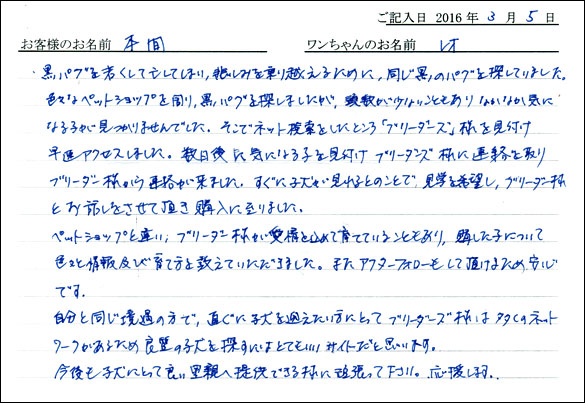 ご記入日 2016 年 3 月 5 日
お客様のお名前 本間 ワンちゃんのお名前 レオ
黒パグを若くして亡くしてしまい、悲しみを乗り越えるために、同じ黒のパグを探していました。
色々なペットショップを回り、黒パグを探しましたが、頭数が少ないこともありなかなか気に
なる子が見つかりませんでした。そこでネット検索をしたところ「ブリーダーズ」様を見付け
早速アクセスしました。数日後に気になる子を見付け ブリーダーズ様に連絡を取り
ブリーダー様から連絡が来ました。すぐに子犬が見れるとのことで、見学を希望し、ブリーダー様
とお話しをさせて頂き購入に至りました。
ペットショップと違い、ブリーダー様が愛情を込めて育てていることもあり、購入した子について
色々と情報及び育て方を教えていただきました。またアフターフォローもして頂けるため安心
です。
自分と同じ境遇の方で、直ぐに子犬を迎えたい方にとってブリーダーズ様は多くのネット
ワークがあるため良質の子犬を探すにはとてもいいサイトだと思います。
今後も子犬にとって良い里親へ提供できる様に頑張って下さい。応援します。